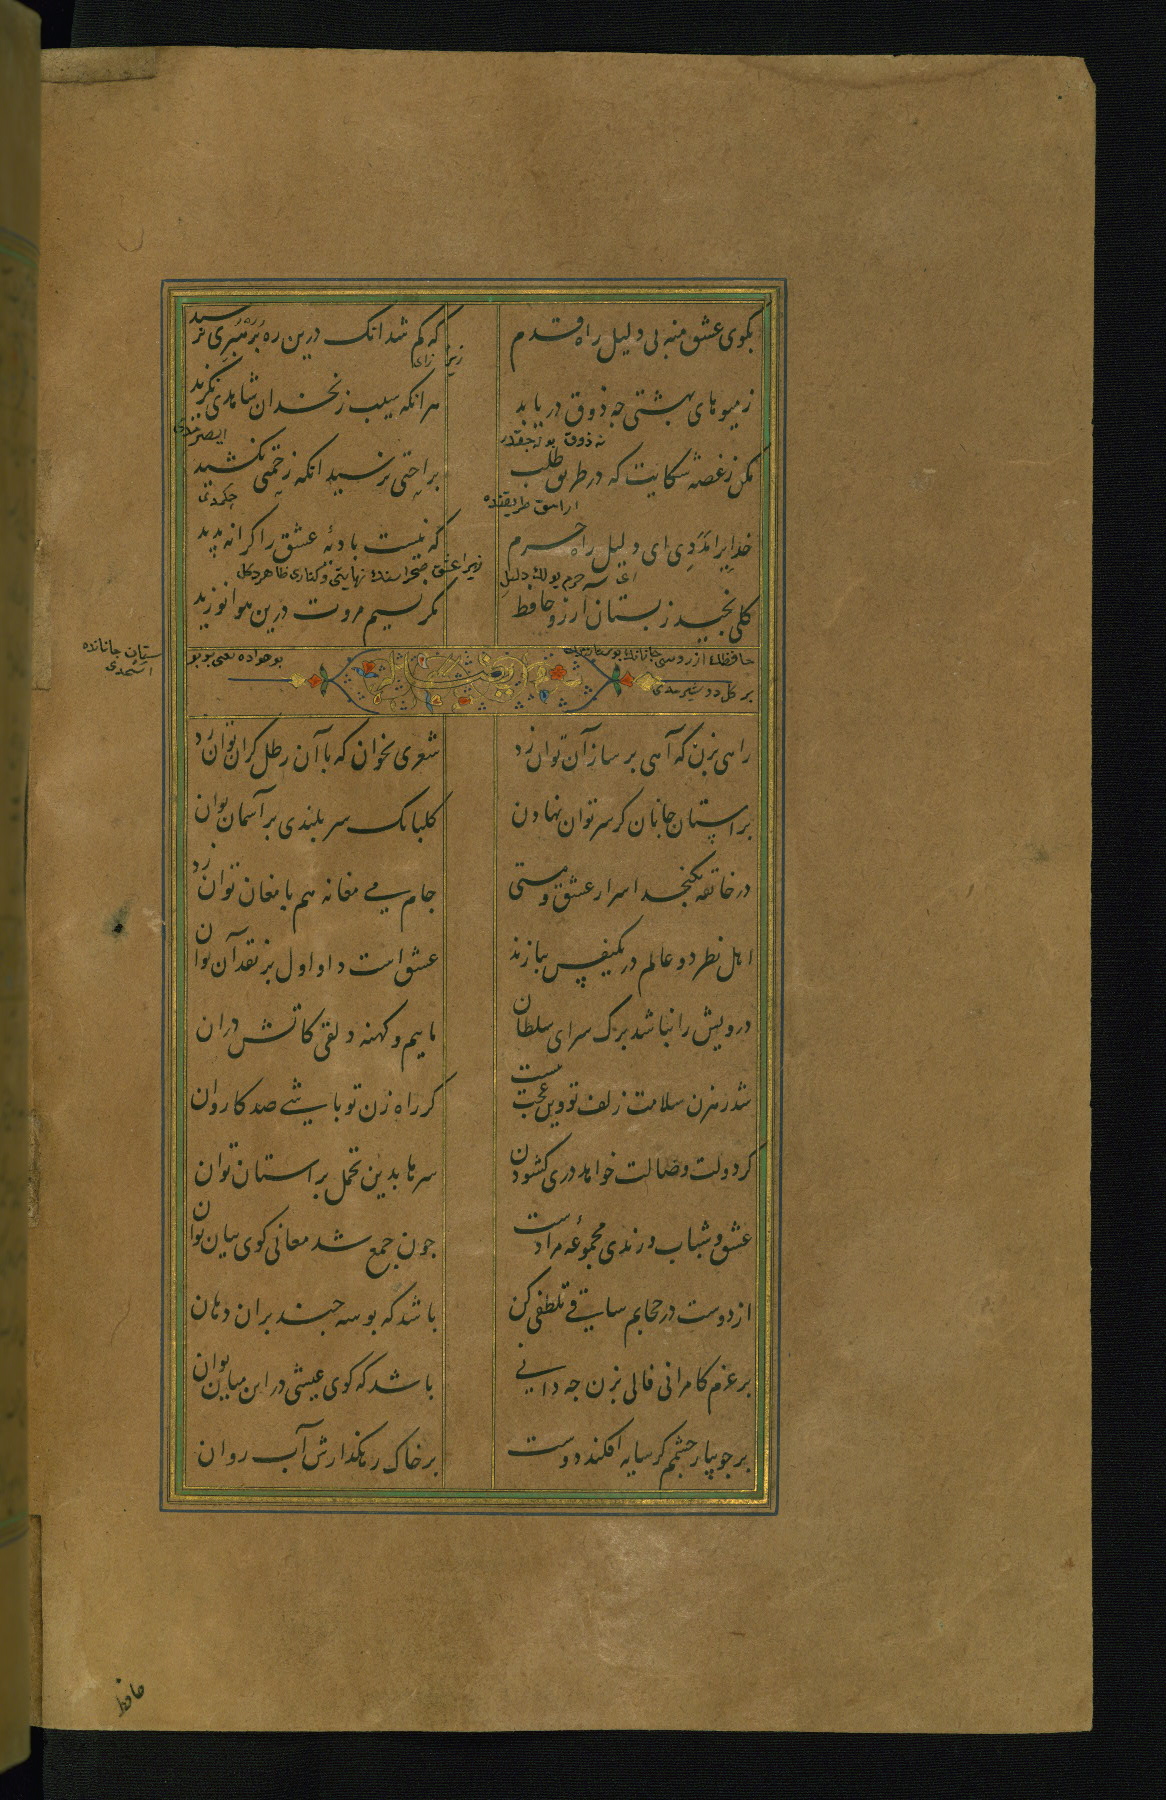 بکوی عشق منه بی دلیل راه قدم
که کم شد انک درین ره برهبری نرسید
زمیوهای بهشتی چه ذوق دریابد
هرانکه سیب زنخدان شاهدی نکزید
نه ذوق بوله جقدر
مکن زغصه شکایت که در طریق طلب
براحتی نرسید انکه زحمتی نکشید
ارامق طریقنده
چکمدی
خدایرا مددی ای دلیل راه حرم
که نیست بادیهٔ عشق را کرانه پدید
ای حرم یولنک دلیل
زیرا عشق صحراسنک نهایتی و کناری ظاهر دکل
کلی نچید ز بستان آرزو حافظ
مکر نسیم مروت درین هوا نوزید
بو هواده یعنی بو
راهی بزن که آهی بر ساز آن توان زد
شعری بخوان که با آن رطل کران توان زد
بر استان جانان کر سر توان نهادن
کلبانک سربلندی بر آسمان توان
در خانقه نکنجد اسرار عشق و مستی
جام می مغانه هم با مغان توان زد
اهل نظر دو عالم در یکنفس ببازند
عشق است و داو اول بر نقد آن توان
درویش را نباشد برک سرای سلطان
ماییم و کهنه دلقی کاتش دران
شد رهزن سلامت زلف تو وین عجب نیست
کر راه زن تو باشی صد کاروان
کر دولت وصالت خواهد دری کشودن
سرها بدین تخیل بر استان توان
عشق و شباب و رندی مجموعهٔ مرادست
چون جمع شد معانی کوی بیان توان
از دوست در حجابم ساقی تلطفی کن
باشد که بوسه چند بران دهان
بر عزم کامرانی فالی بزن چه دانی
باشد که کوی عیشی در این میان توان
بر جویبار چشمم کر سایه افکند دوست
بر خاک رهکذارش آب روان
حافظ